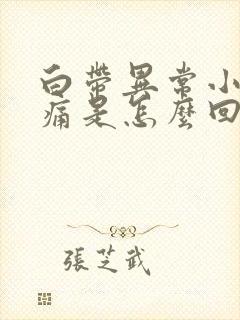 白帶異常小
痛是怎麼回
張芝武